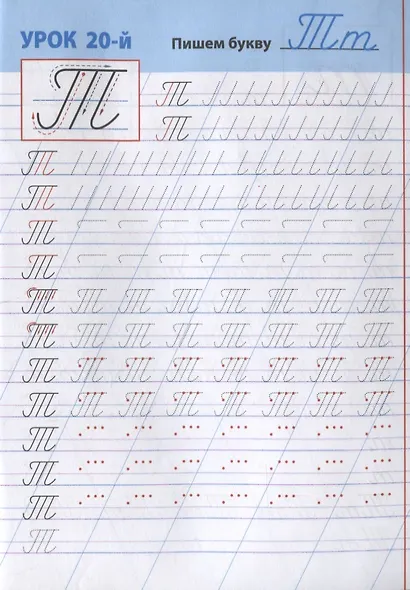 УРОК 20-й
Пишем букву Тт
Т
Т
Т
Т
Т
Т
Т
Т Т Т Т Т Т Т Т
Т Т Т Т Т Т Т Т
Т Т Т Т Т Т Т Т
Т Т Т Т Т Т Т Т
Т
Т
Т
Т